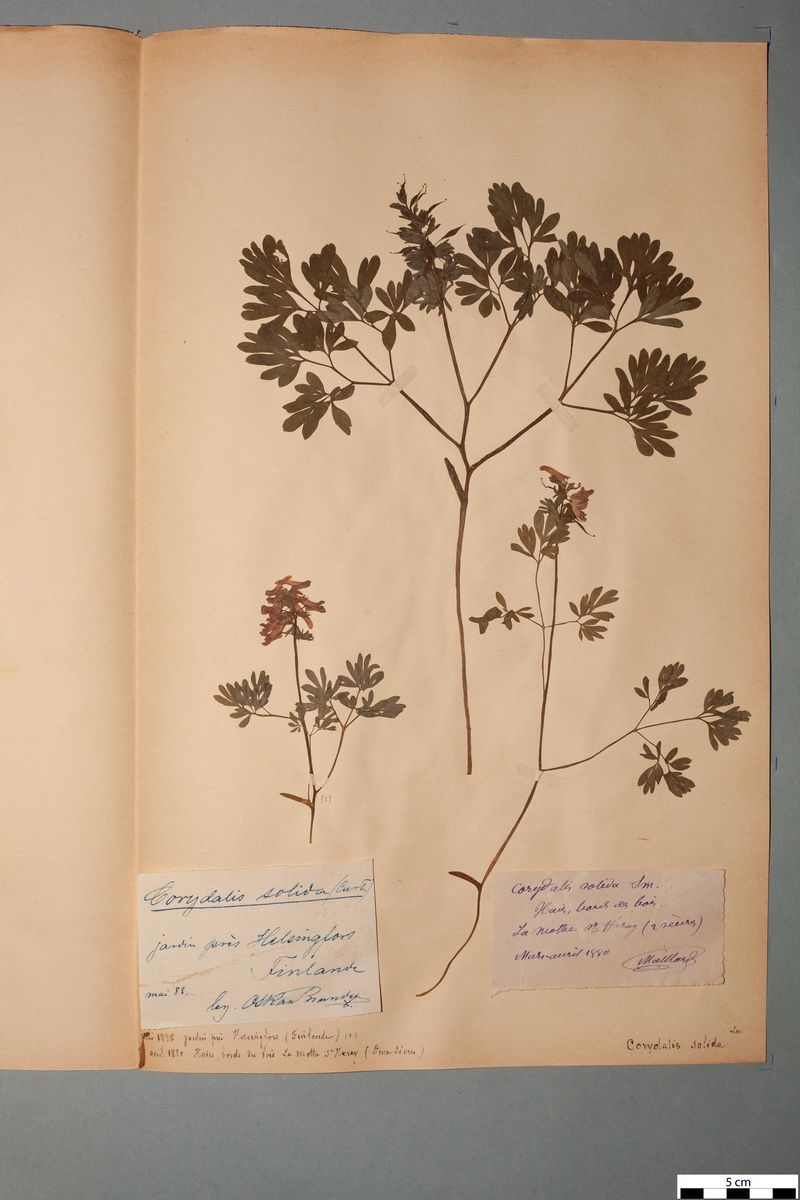 (1)
Corydalis solida (Curt.)
jardin près Helsingfors
Finlande
mai 88.
leg. Oskar
Corydalis solida Sm.
Haies, bords des bois.
La Mothe St Héray (2 sèvres)
Mars-avril 1880 Maillard
1888 jardin près Helsingfors (Finlande) (1)
avril 1880 Haies, bords du bois La Mothe St Heray (Deux Sèvres)
Corydalis solida
5 cm